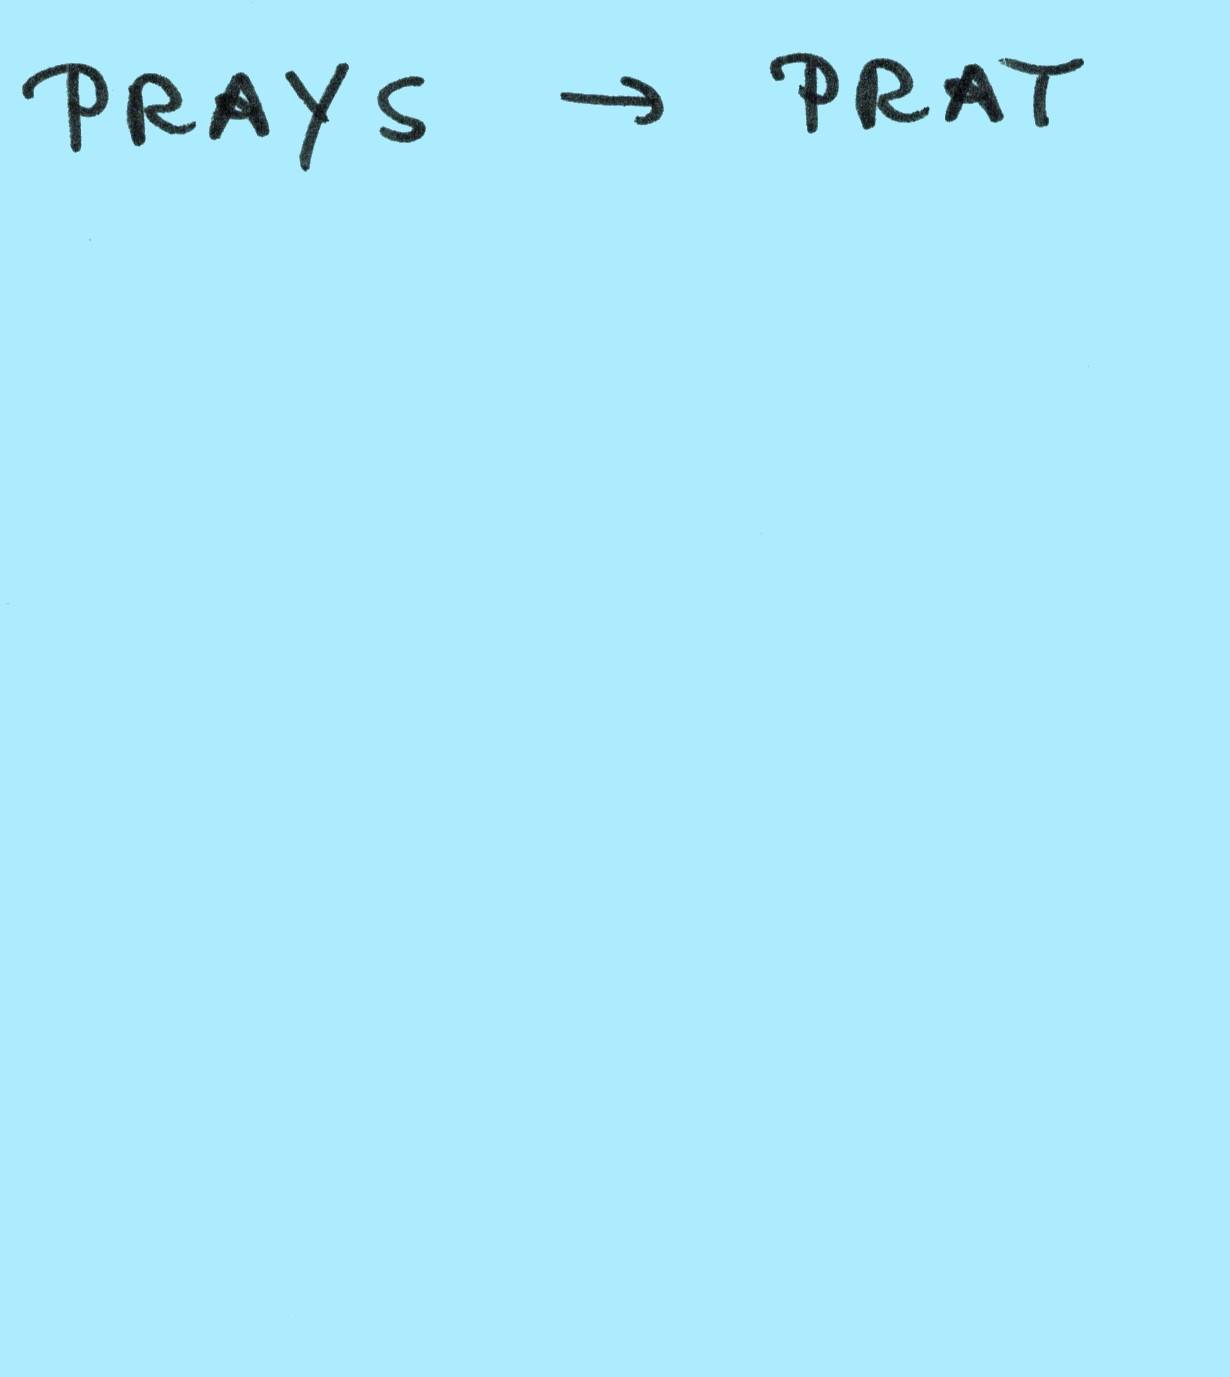 PRAYS → PRAT